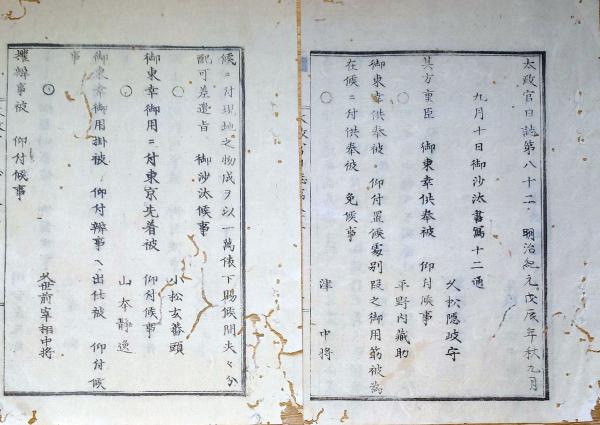 太政官日誌第八十二 明治紀元戊辰年秋九月
九月十日御沙汰書寫十二通
久松隠岐守
其方重臣 御東幸供奉被 仰付候事
○
平野内藏助
御東幸供奉被 仰付置候處別段之御用筋被為
在候ニ付供奉被 免候事
○
津 中将
候ニ付現地之物成ヲ以一萬俵下賜候間夫々分
配可差遣旨 御沙汰候事
○
小松玄蕃頭
御東幸御用ニ付東京先着被 仰付候事
○
山本靜逸
御東幸御用掛被 仰付辨事へ出仕被 仰付候
事
○
久世前宰相中将
權辨事被 仰付候事